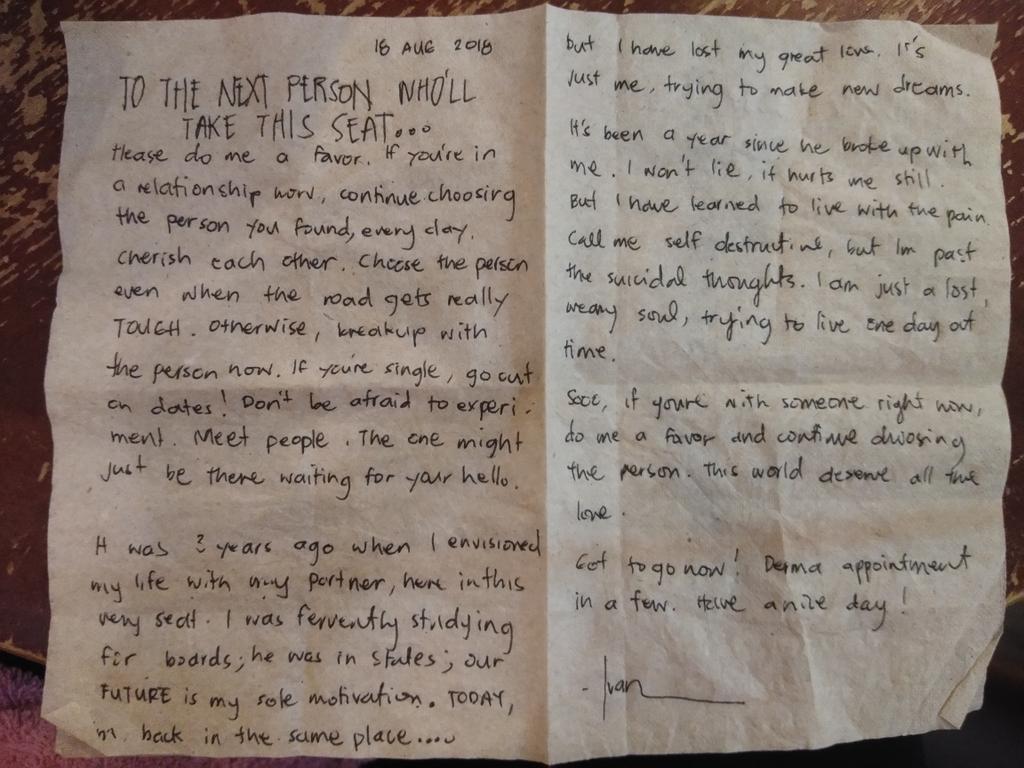 18 AUG 2018
TO THE NEXT PERSON WHO'LL
TAKE THIS SEAT...
Please do me a favor. If you're in
a relationship now, continue choosing
the person you found, every day.
Cherish each other. Choose the person
even when the road gets really
TOUGH. Otherwise, breakup with
the person now. If you're single, go out
on dates! Don't be afraid to experi-
ment. Meet people. The one might
just be there waiting for your hello.
It was 2 years ago when I envisioned
my life with my partner, here in this
very seat. I was fervently studying
for boards; he was in States; our
FUTURE is my sole motivation. TODAY,
I'm back in the same place....
but I have lost my great love. It's
just me, trying to make new dreams.
It's been a year since he broke up with
me. I won't lie, it hurts me still.
But I have learned to live with the pain.
Call me self destructive, but I'm past
the suicidal thoughts. I am just a lost,
weary soul, trying to live one day at
time.
Sooo, if you're with someone right now,
do me a favor and continue choosing
the person. This world deserve all the
love.
Got to go now! Derma appointment
in a few. Have a nice day!
- Ivan